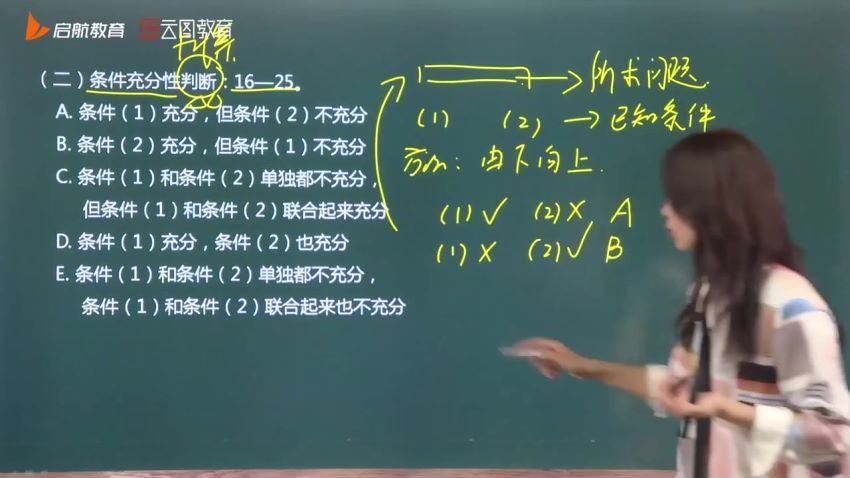 启航教育 云图教育
计算
(二)条件充分性判断:16—25。
A. 条件(1)充分,但条件(2)不充分
B. 条件(2)充分,但条件(1)不充分
C. 条件(1)和条件(2)单独都不充分,
但条件(1)和条件(2)联合起来充分
D. 条件(1)充分,条件(2)也充分
E. 条件(1)和条件(2)单独都不充分,
条件(1)和条件(2)联合起来也不充分
→ 所求问题.
(1) (2) → 已知条件
方向: 由下向上.
(1) ✓ (2) × A
(1) × (2) ✓ B